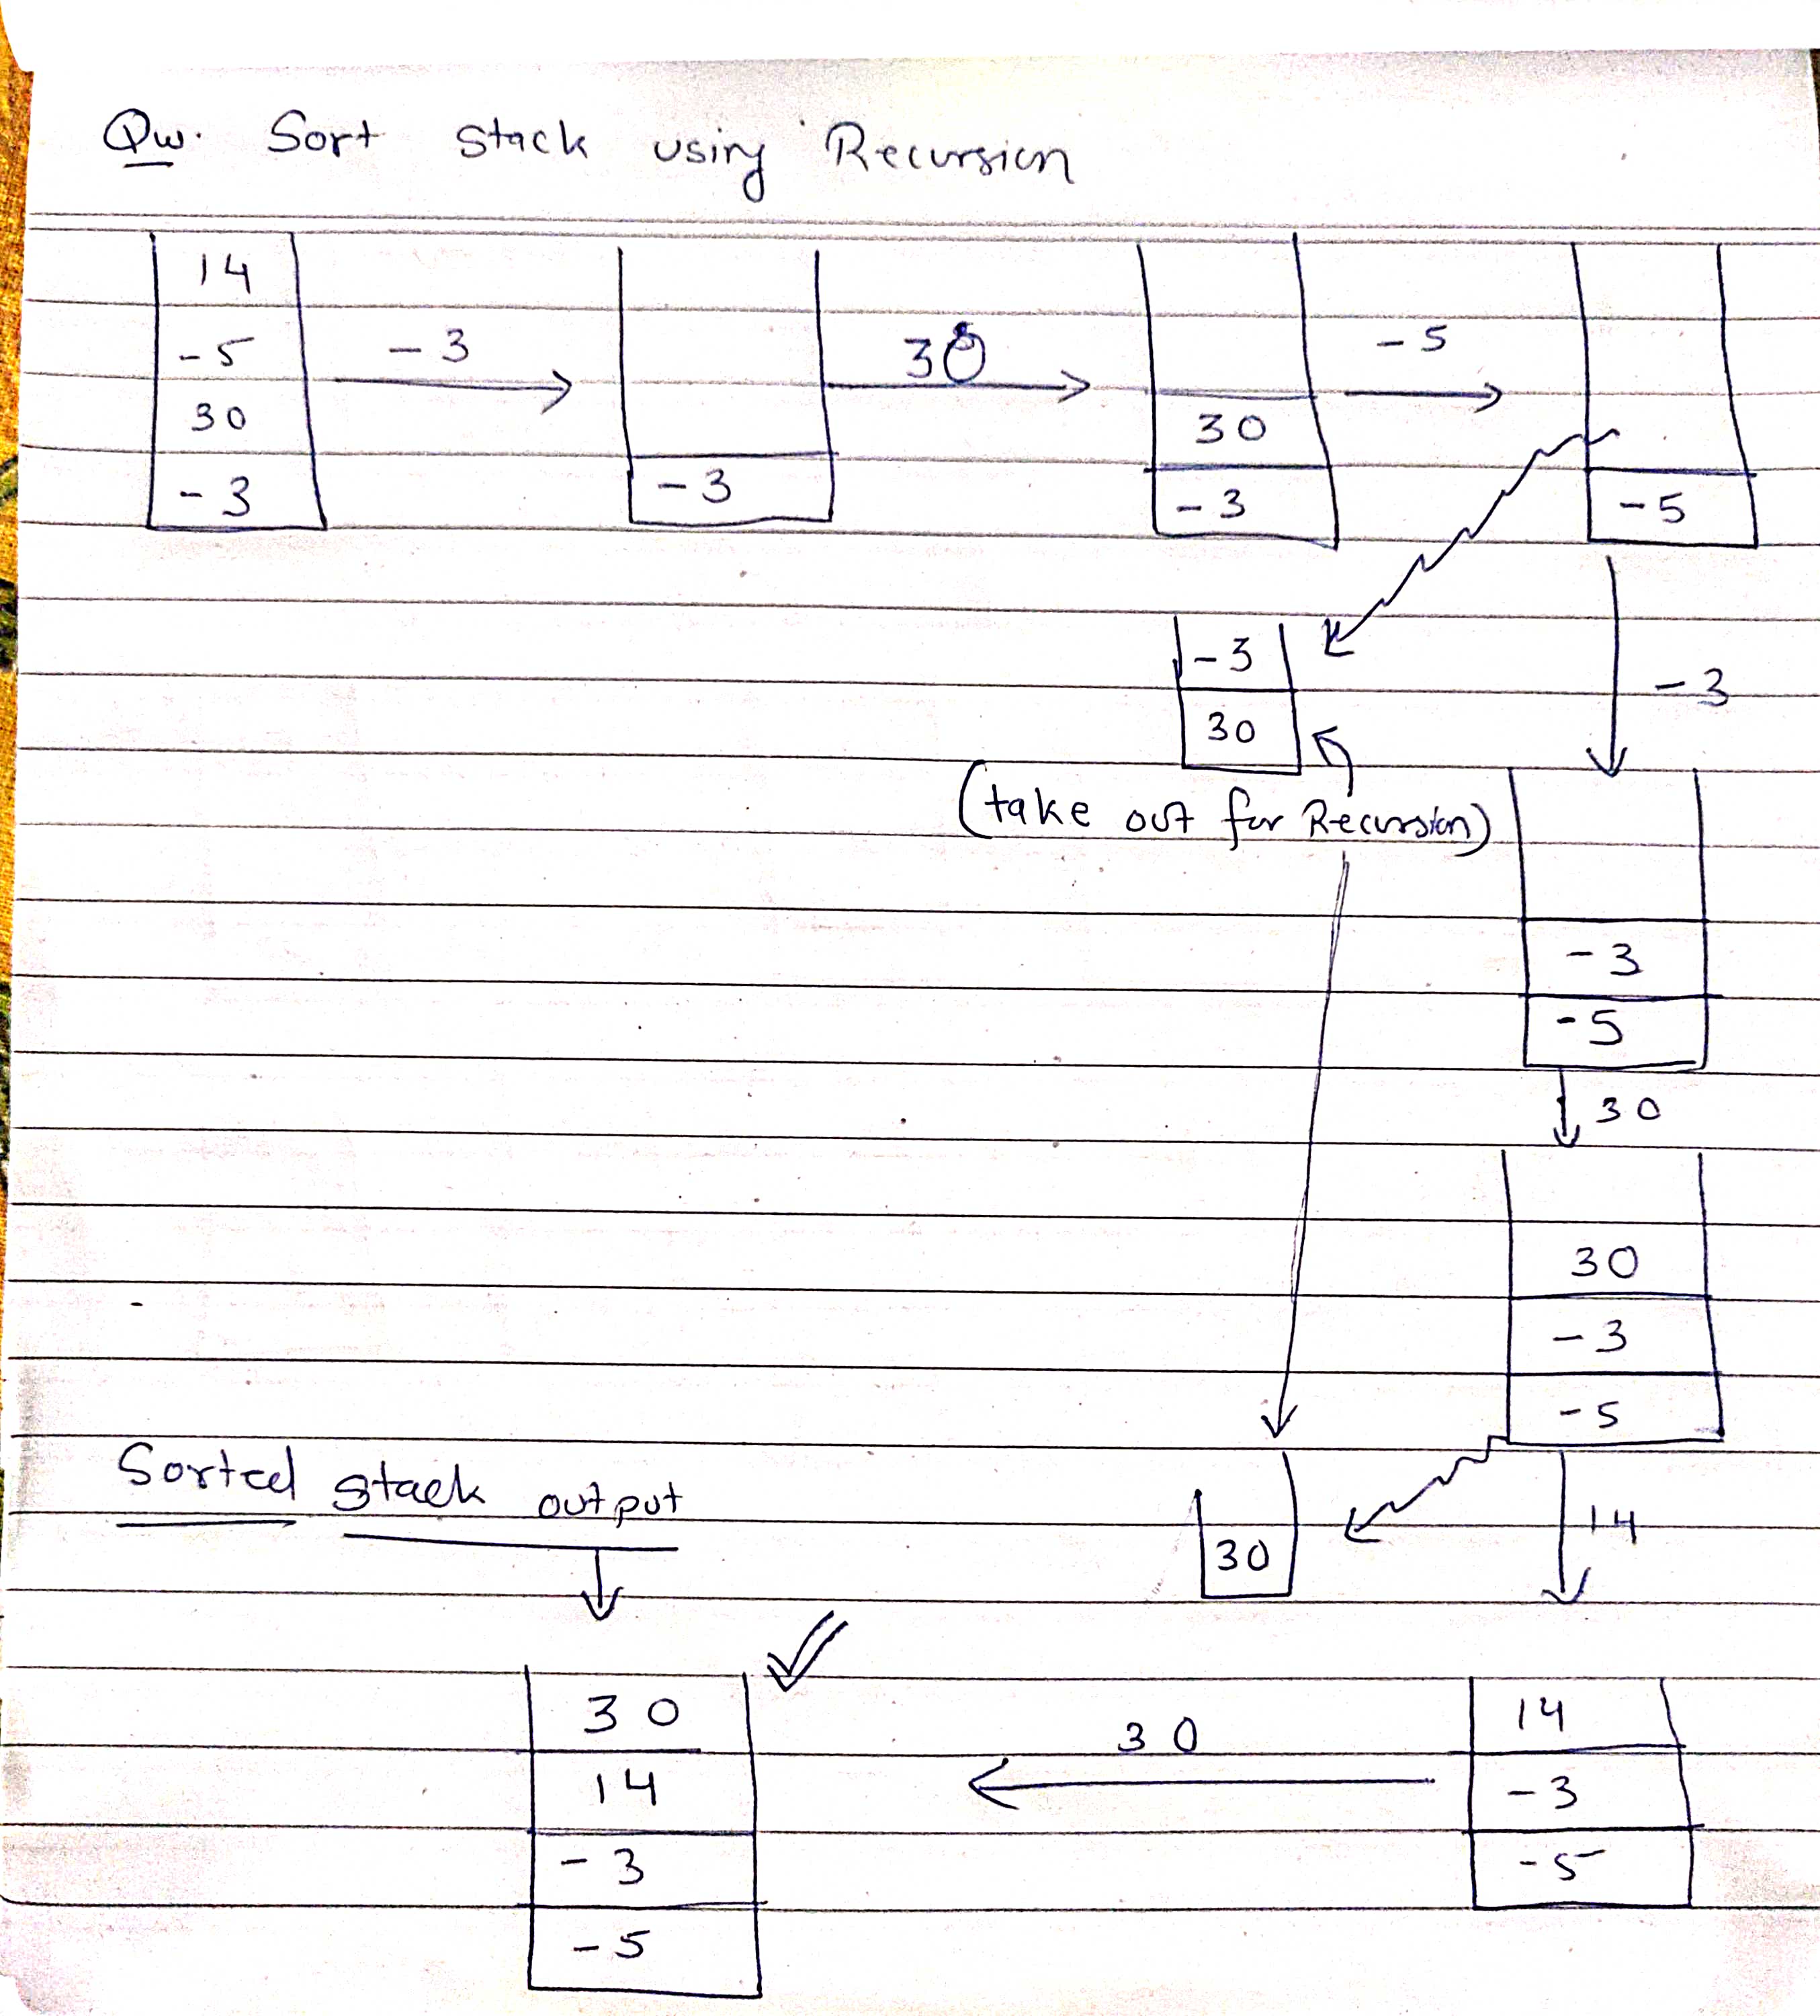 Qw. Sort stack using Recursion
14
-5
30
-3
-3
-3
30
30
-3
-5
-5
-3
30
-3
(take out for Recursion)
-3
-5
30
30
-3
-5
Sorted stack output
30
14
30
14
-3
-5
30
14
-3
-5